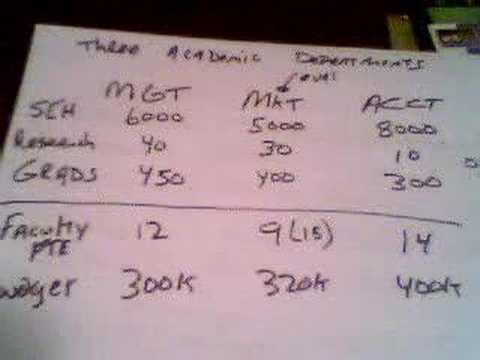 Three Academic Departments
eval
MGT MKT ACCT
SCH 6000 5000 8000
Research 40 30 10
GRADS 450 400 300
Faculty FTE 12 9 (15) 14
udget 300K 320K 400K